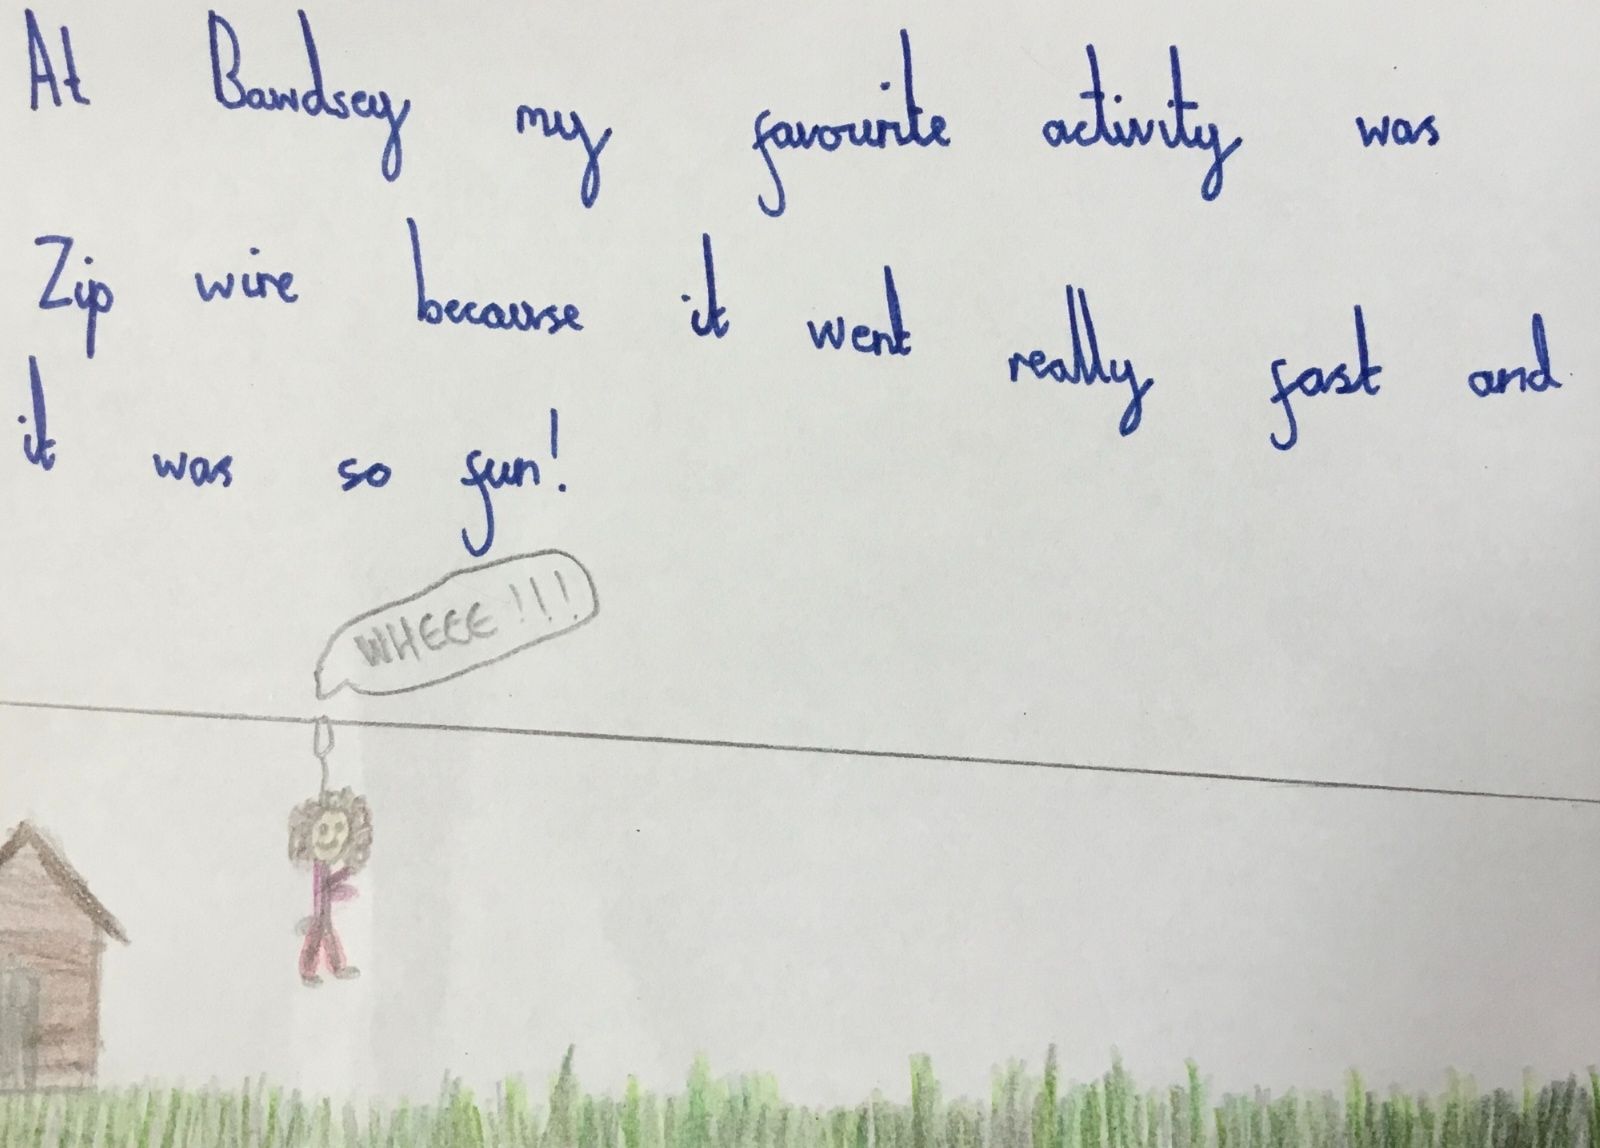 At Bawdsey my favourite activity was
Zip wire because it went really fast and
it was so fun!
WHEEE!!!